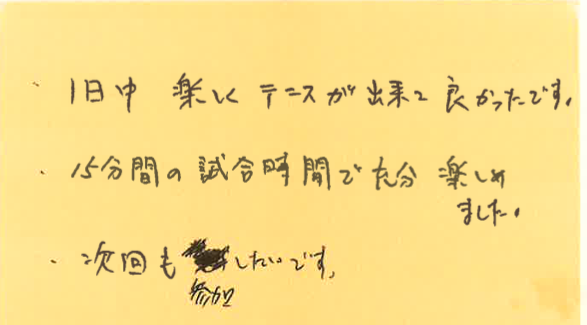 ・1日中 楽しく テニスが出来て良かったです。
・15分間の試合時間で充分 楽しめ
ました。
・次回も参加したいです。